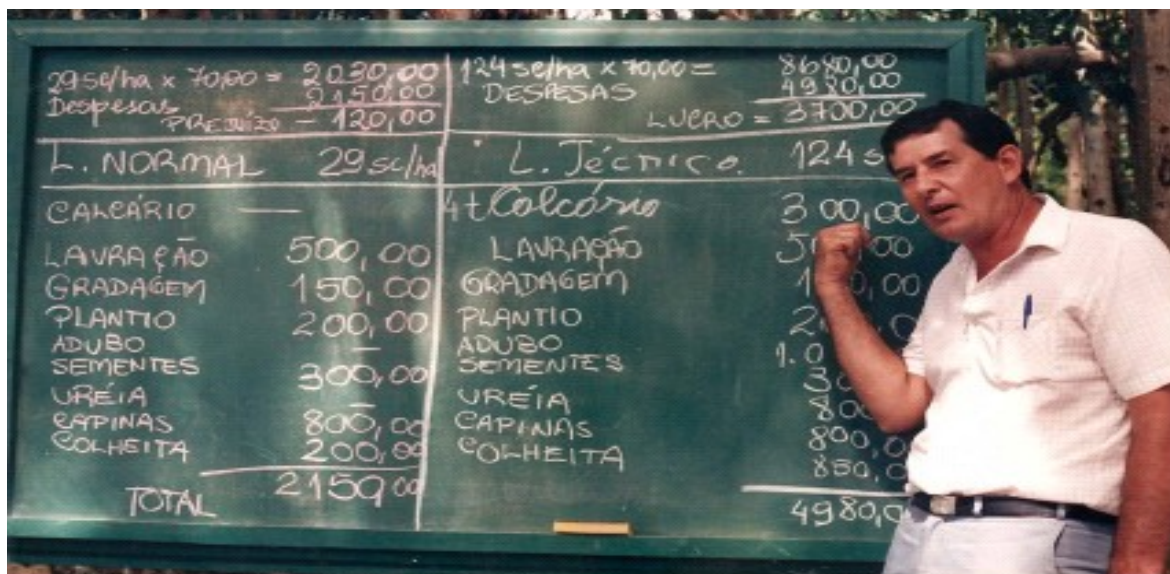 29 sc/ha x 70,00 = 2030,00
2150,00
Despesas
PREJUÍZO - 120,00
L. NORMAL 29 sc/ha
CALCÁRIO —
LAVRAÇÃO 500,00
GRADAGEM 150,00
PLANTIO 200,00
ADUBO —
SEMENTES 300,00
URÉIA —
CAPINAS 800,00
COLHEITA 200,00
TOTAL 2150,00
124 sc/ha x 70,00 = 8680,00
DESPESAS 4980,00
LUCRO = 3700,00
L. Técnico. 124 s
4 t Calcário 300,00
LAVRAÇÃO 5 00
GRADAGEM 1 0,00
PLANTIO 2
ADUBO 1.0
SEMENTES 30
URÉIA 800
CAPINAS 800,0
COLHEITA 850,0
4980,0